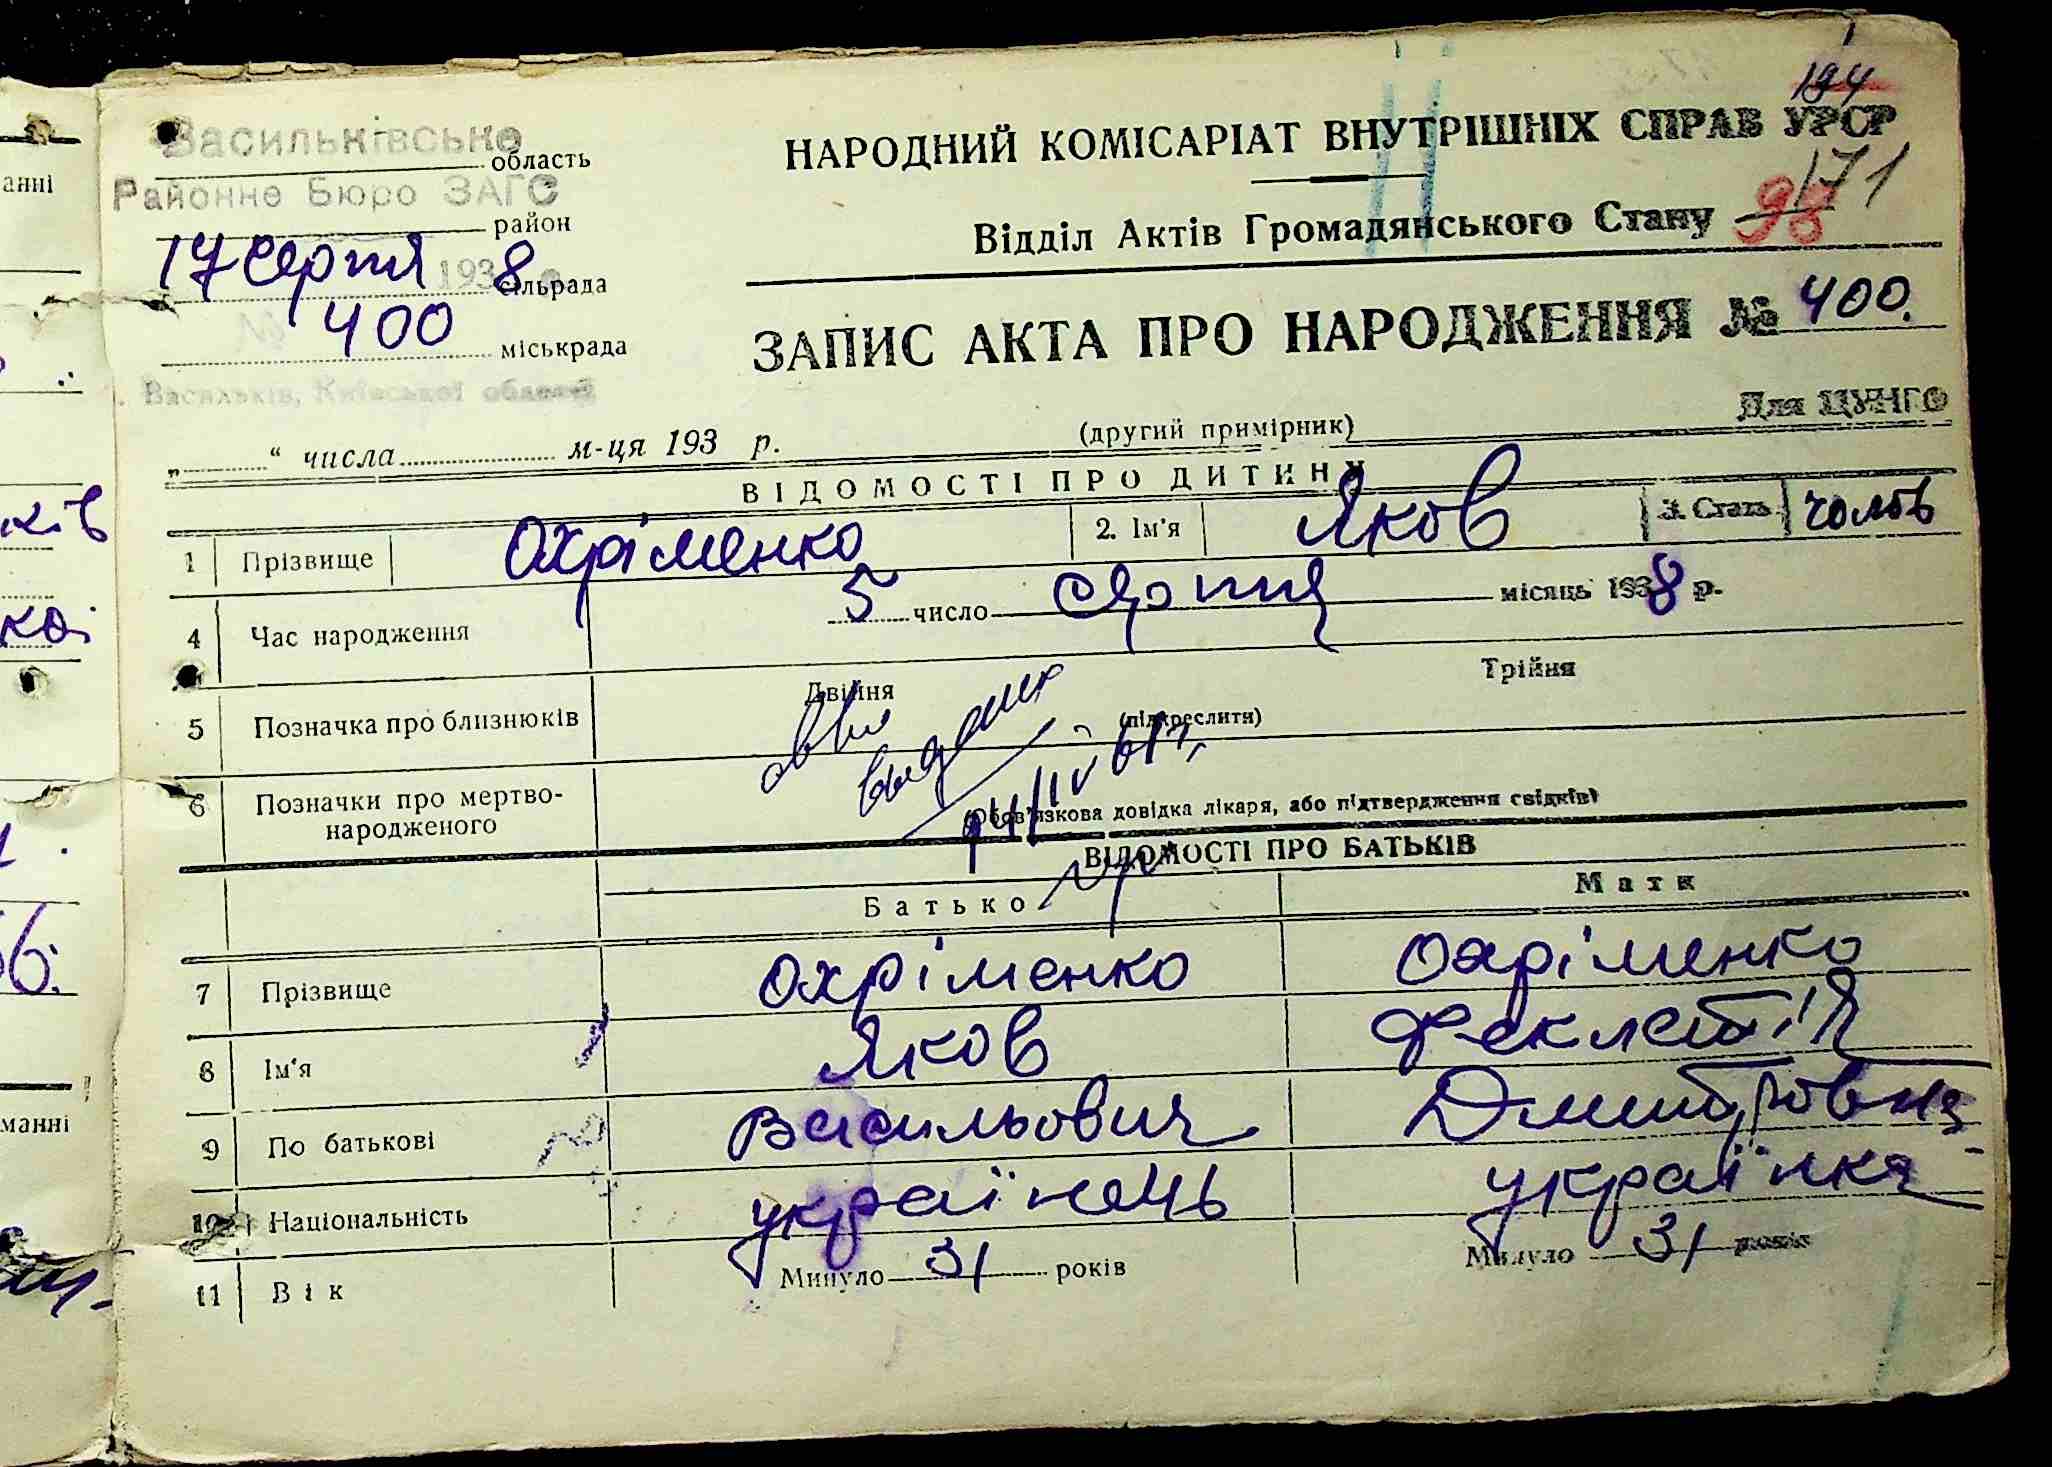 194
Васильківське
область
НАРОДНИЙ КОМІСАРІАТ ВНУТРІШНІХ СПРАВ УРСР
Районне Бюро ЗАГС
район
171
Відділ Актів Громадянського Стану 98
17 серпня 1938
сільрада
400 міськрада
ЗАПИС АКТА ПРО НАРОДЖЕННЯ № 400.
Васильків, Київської області
Для ЦУНГО
„ “ числа м-ця 193 р.
(другий примірник)
ВІДОМОСТІ ПРО ДИТИНУ
1 Прізвище Охріменко 2. Ім'я Яков 3. Стать чолов
4 Час народження 5 число серпня місяць 1938 р.
Двійня Трійня
5 Позначка про близнюків (підкреслити)
6 Позначки про мертво-
народженого
(Обов'язкова довідка лікаря, або підтвердження свідків)
ВІДОМОСТІ ПРО БАТЬКІВ
Батько Мати
7 Прізвище Охріменко Охріменко
8 Ім'я Яков Феклетія
9 По батькові Васильович Дмитровна
10 Національність українець українка
11 Вік Минуло 31 років Минуло 31 років
анні
ків
кої
манні